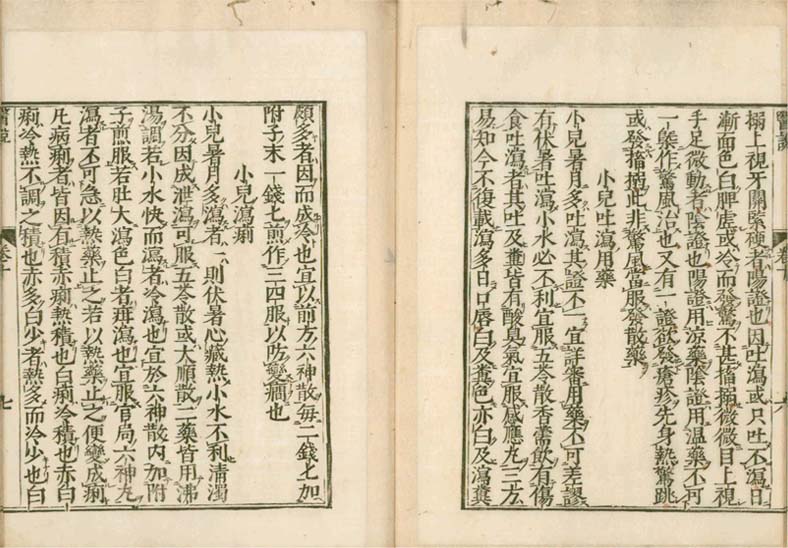 醫說
搦上視牙關緊硬者陽證也因吐瀉或只吐不瀉日
漸面色白脾虛或冷而發驚不甚搐搦微微目上視
手足微動者陰證也陽證用涼藥陰證用溫藥不可
一槩作驚風治也又有一證欲發瘡疹先身熱驚跳
或發搐搦此非驚風當服發散藥
小兒吐瀉用藥
小兒暑月多吐瀉其證不一宜詳審用藥不可差謬
有伏暑吐瀉小水必不利宜服五苓散香薷飲有傷
食吐瀉者其吐及糞皆有酸臭氣宜服感應丸三方
易知今不復載瀉多日口唇白及糞色亦白及瀉糞
卷十
六
頗多者因而成冷也宜以前方六神散每二錢匕加
附子末一錢匕煎作三四服以防變癎也
小兒瀉痢
小兒暑月多瀉者一則伏暑心臟熱小水不利清濁
不分因成泄瀉可服五苓散或大順散二藥皆用沸
湯調若小水快而瀉者冷瀉也宜於六神散內加附
子煎服若肚大瀉色白者疳瀉也宜服官局六神丸
瀉者不可急以熱藥止之若以熱藥止之便變成痢
凡病痢者皆因有積赤痢熱積也白痢冷積也赤白
痢冷熱不調之積也赤多白少者熱多而冷少也白
卷十
七